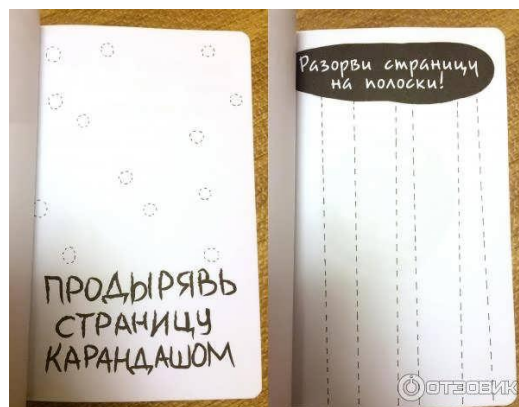 ПРОДЫРЯВЬ
СТРАНИЦУ
КАРАНДАШОМ
Разорви страницу
на полоски!
ОТЗОВИК